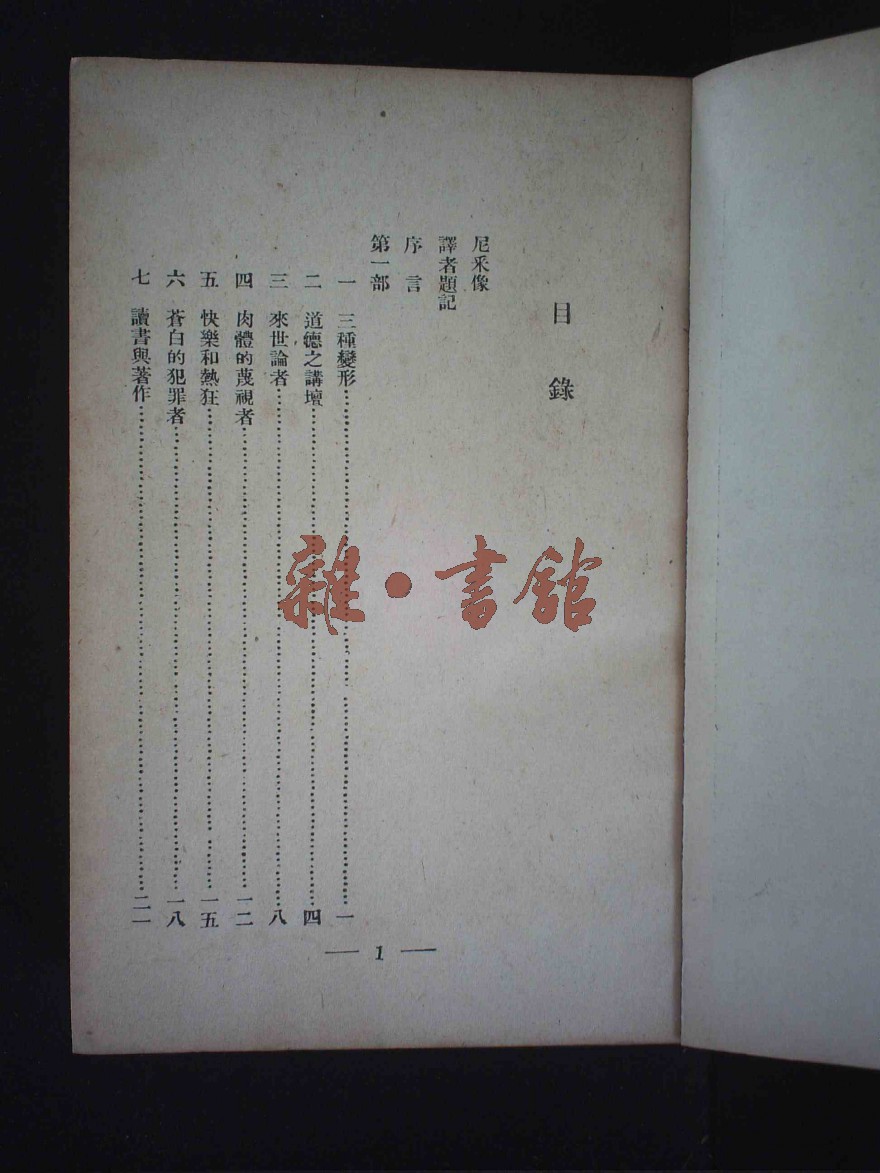 目錄
尼釆像
譯者題記
序言
第一部
一 三種變形 一
二 道德之講壇 四
三 來世論者 八
四 肉體的蔑視者 一二
五 快樂和熱狂 一五
六 蒼白的犯罪者 一八
七 讀書與著作 二一
— 1 —
雜·書館